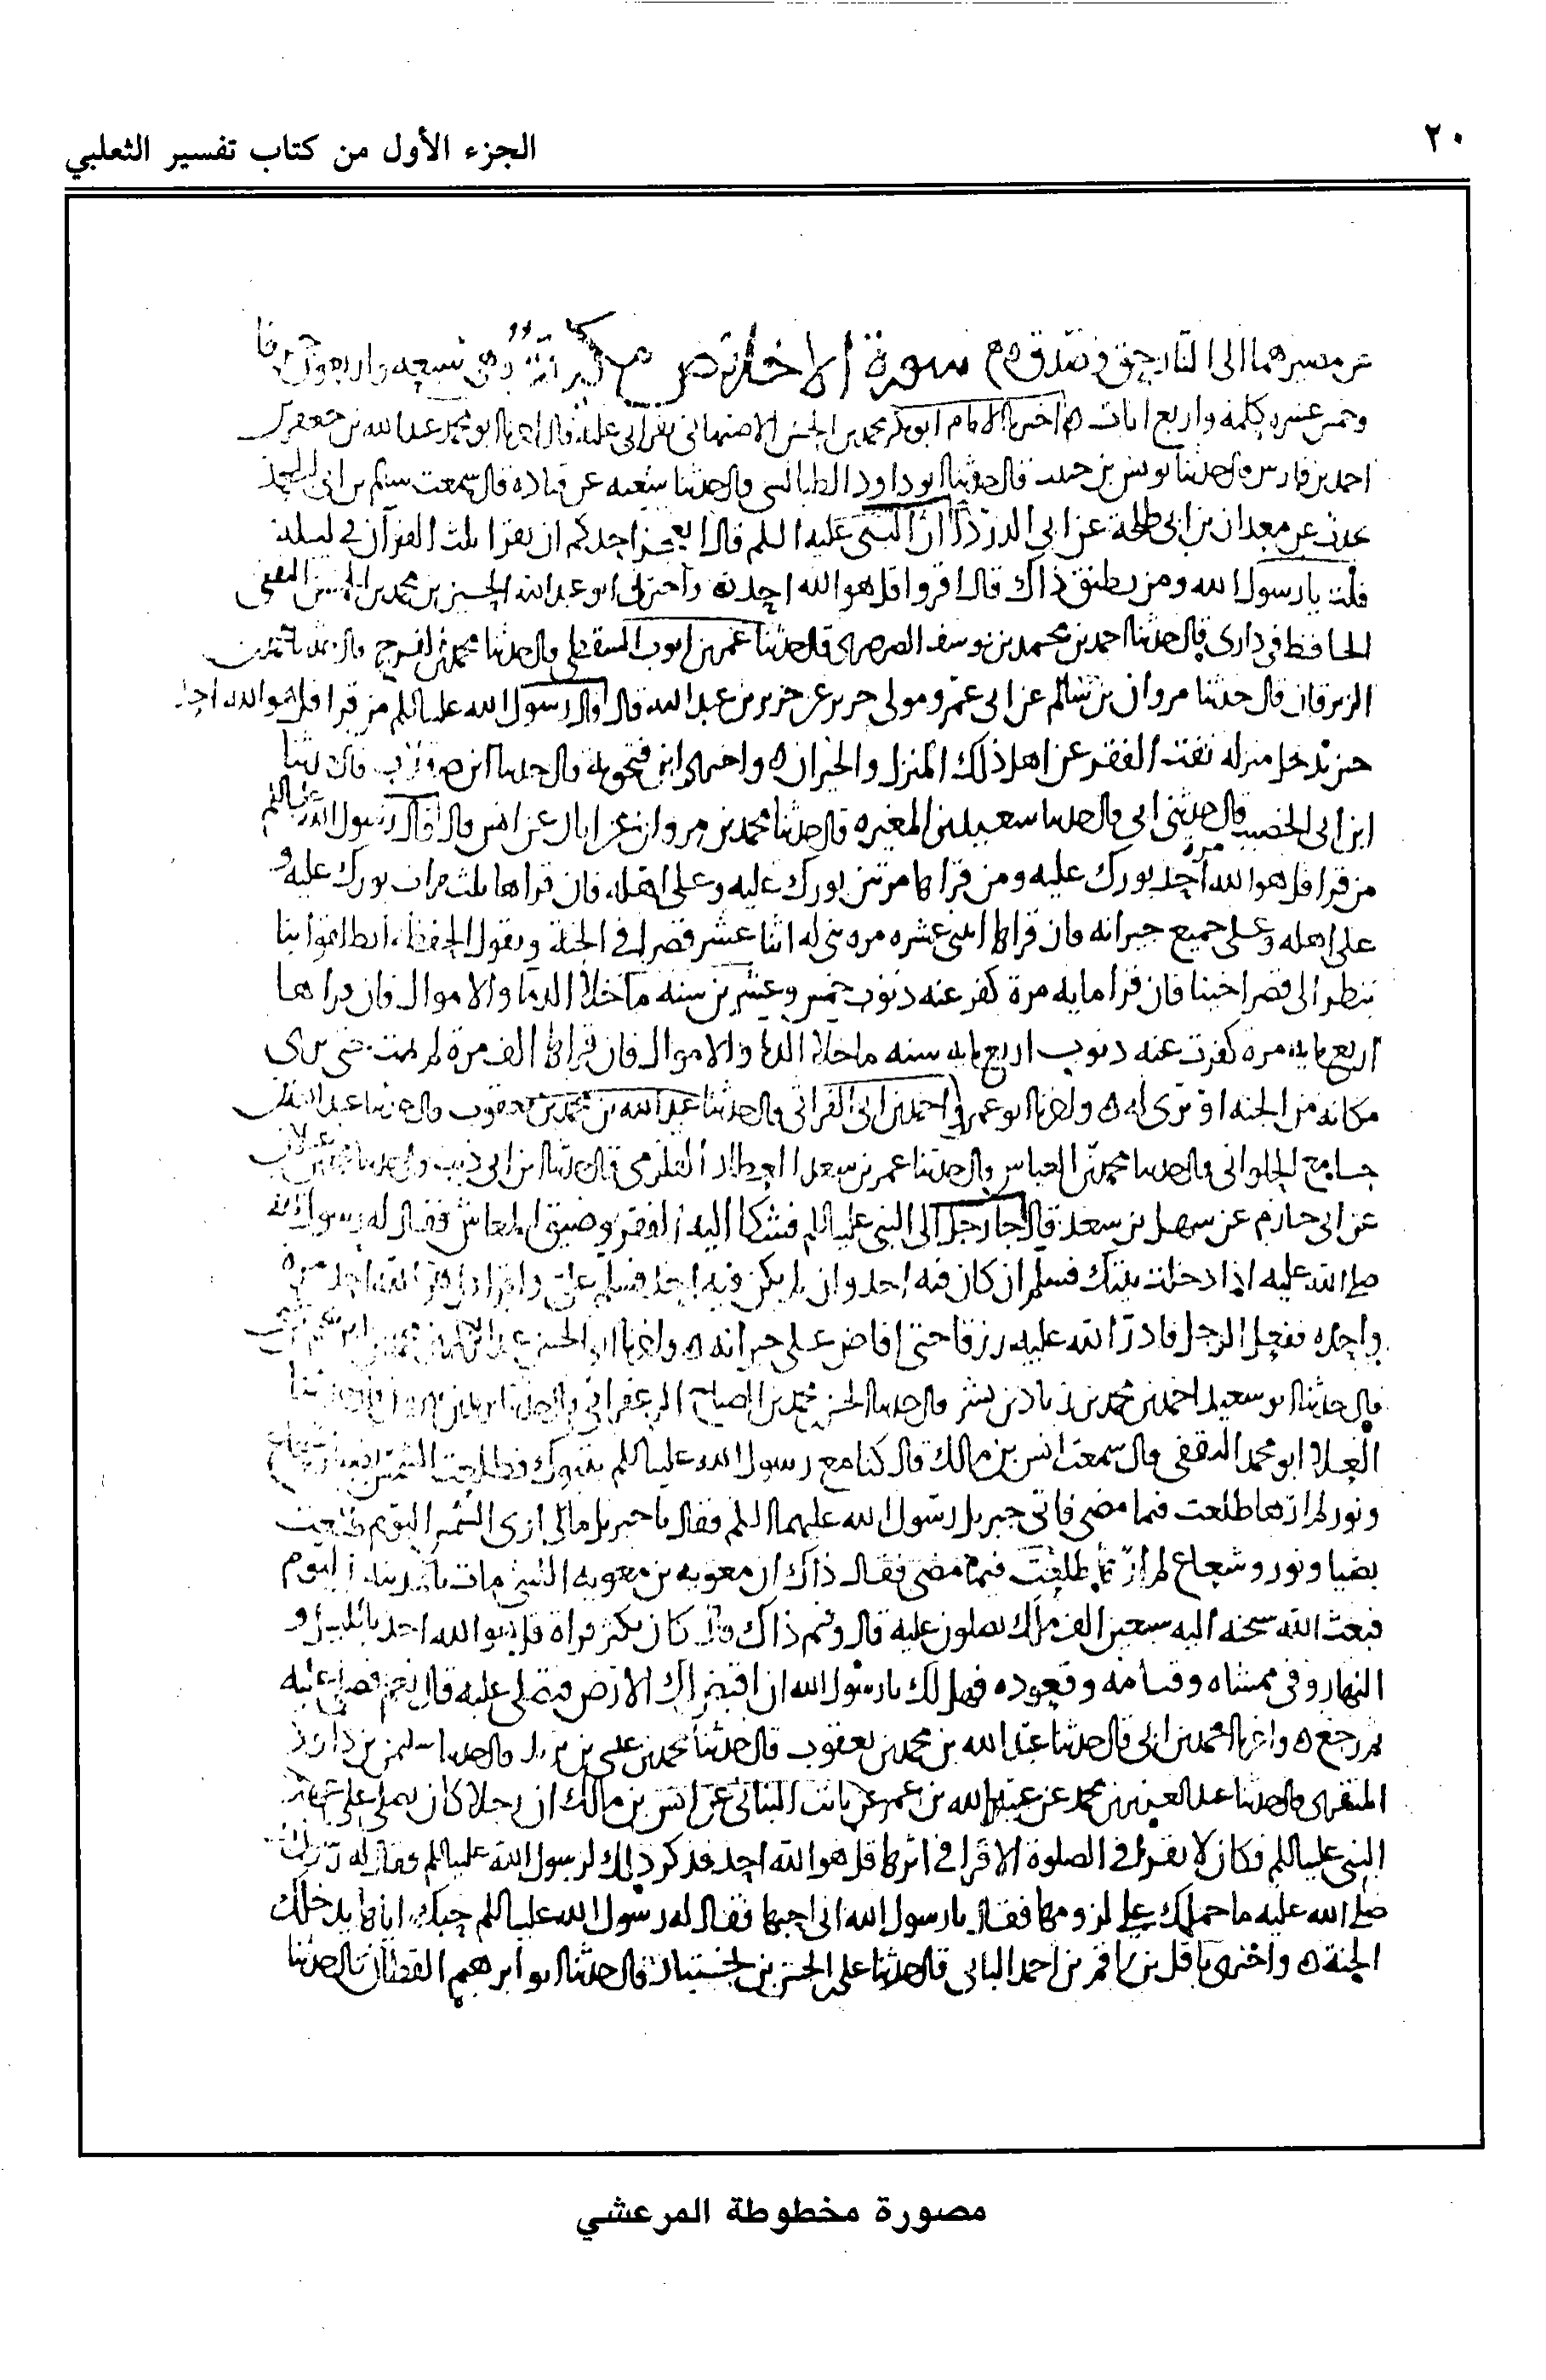 ٢٠
الجزء الأول من كتاب تفسير الثعلبي
عن مصيرهما الى النار حق وصدق سورة الاخلاص مكية وهي سبعة واربعون حرفا
وخمس عشره كلمه واربع ايات اخبرنا الامام ابو بكر محمد بن الحسن الاصبهاني بقراتي عليه قال ابو محمد عبد الله بن جعفر بن
احمد بن فارس قال حدثنا يونس بن حبيب قال حدثنا ابو داود الطيالسي قال حدثنا شعبه عن قتاده قال سمعت سالم بن ابي الجعد
يحدث عن معدان بن ابي طلحة عن ابي الدردا ان النبي عليه السلم قال ايعجز احدكم ان يقرا ثلث القرآن في ليلة
قلت يا رسول الله ومن يطيق ذاك قال اقروا قل هو الله احد واخبرني ابو عبد الله الحسين بن محمد بن الحسين الثقفي
الحافظ في داري قال حدثنا احمد بن محمد بن يوسف الصرصري قال حدثنا عمر بن ايوب السقطي قال حدثنا محمد بن الفرج قال حدثنا محمد بن
الزبرقان قال حدثنا مروان بن سالم عن ابي عمرو مولى جرير عن جرير بن عبد الله قال قال رسول الله عليه السلم من قرا قل هو الله احد
حين يدخل منزله نفت الفقر عن اهل ذلك المنزل والجيران واخبرني ابن فنجويه قال حدثنا
ابن ابي الخصيب قال حدثني ابي قال حدثنا سعيد بن المغيره قال حدثنا محمد بن مروان عن ابان عن انس قال قال رسول الله عليه السلم
من قرا قل هو الله احد مرة بورك عليه ومن قراها مرتين بورك عليه وعلى اهله فان قراها ثلث مرات بورك عليه و
على اهله وعلى جميع جيرانه فان قراها اثنى عشره مره بنى له اثنا عشر قصرا في الجنة ويقول الحفظه انطلقوا بنا
ننظر الى قصر اخينا فان قراها مايه مرة كفر عنه ذنوب خمس وعشرين سنه ما خلا الدما والاموال فان قراها
اربع مايه مرة كفرت عنه ذنوب اربع مايه سنه ما خلا الدما والاموال فان قراها الف مرة لم يمت حتى يرى
مكانه من الجنه او ترى له واخبرنا ابو عمرو احمد بن ابي الفراتي قال حدثنا عبد الله بن محمد بن يعقوب قال حدثنا عبد الله بن
جامع الحلواني قال حدثنا محمد بن العباس قال حدثنا عمر بن سعد العطار القلزمي قال حدثنا ابن ابي ذيب قال حدثنا محمد بن عجلان
عن ابي حازم عن سهل بن سعد قال جا رجل الى النبي عليه السلم فشكا اليه الفقر وضيق المعاش فقال له رسول الله
صلى الله عليه اذا دخلت بيتك فسلم ان كان فيه احد وان لم يكن فيه احد فسلم علي واقرا قل هو الله احد مرة
واحده ففعل الرجل فادر الله عليه رزقا حتى افاض على جيرانه واخبرنا ابو الحسن
قال حدثنا ابو سعيد احمد بن محمد بن زياد بن بشر قال حدثنا الحسن بن محمد بن الصباح الزعفراني قال حدثنا يزيد بن هرون قال حدثنا
العلا ابو محمد الثقفي قال سمعت انس بن مالك قال كنا مع رسول الله عليه السلم بتبوك فطلعت الشمس بضيا وشعاع
ونور لم ارها طلعت فيما مضى فاتى جبريل رسول الله عليهما السلم فقال يا جبريل مالي ارى الشمس اليوم طلعت
بضيا ونور وشعاع لم ارها طلعت فيما مضى فقال ذاك ان معويه بن معويه الليثي مات بالمدينه اليوم
فبعث الله سبحنه اليه سبعين الف ملك يصلون عليه قال وفيم ذاك قال كان يكثر قراة قل هو الله احد بالليل و
النهار وفي ممشاه وقيامه وقعوده فهل لك يا رسول الله ان اقبض لك الارض فتصلي عليه قال نعم فصلى عليه
ثم رجع واخبرنا محمد بن ابي قال حدثنا عبد الله بن محمد بن يعقوب قال حدثنا محمد بن علي بن يزيد قال حدثنا سليمن بن داود
المنقري قال حدثنا عبد العزيز بن محمد عن عبيد الله بن عمر عن ثابت البناني عن انس بن مالك ان رجلا كان يصلي على عهد
النبي عليه السلم فكان لا يقرا في الصلوة الا قرا في اثرها قل هو الله احد فذكر ذلك لرسول الله عليه السلم فقال له رسول الله
صلى الله عليه ما حملك على لزومها فقال يا رسول الله اني احبها فقال له رسول الله عليه السلم حبك اياها يدخلك
الجنة واخبرني باقل بن راقم بن احمد البابي قال حدثنا علي بن الحسن بن بختيار قال حدثنا ابو ابرهيم القطان قال حدثنا
مصورة مخطوطة المرعشي